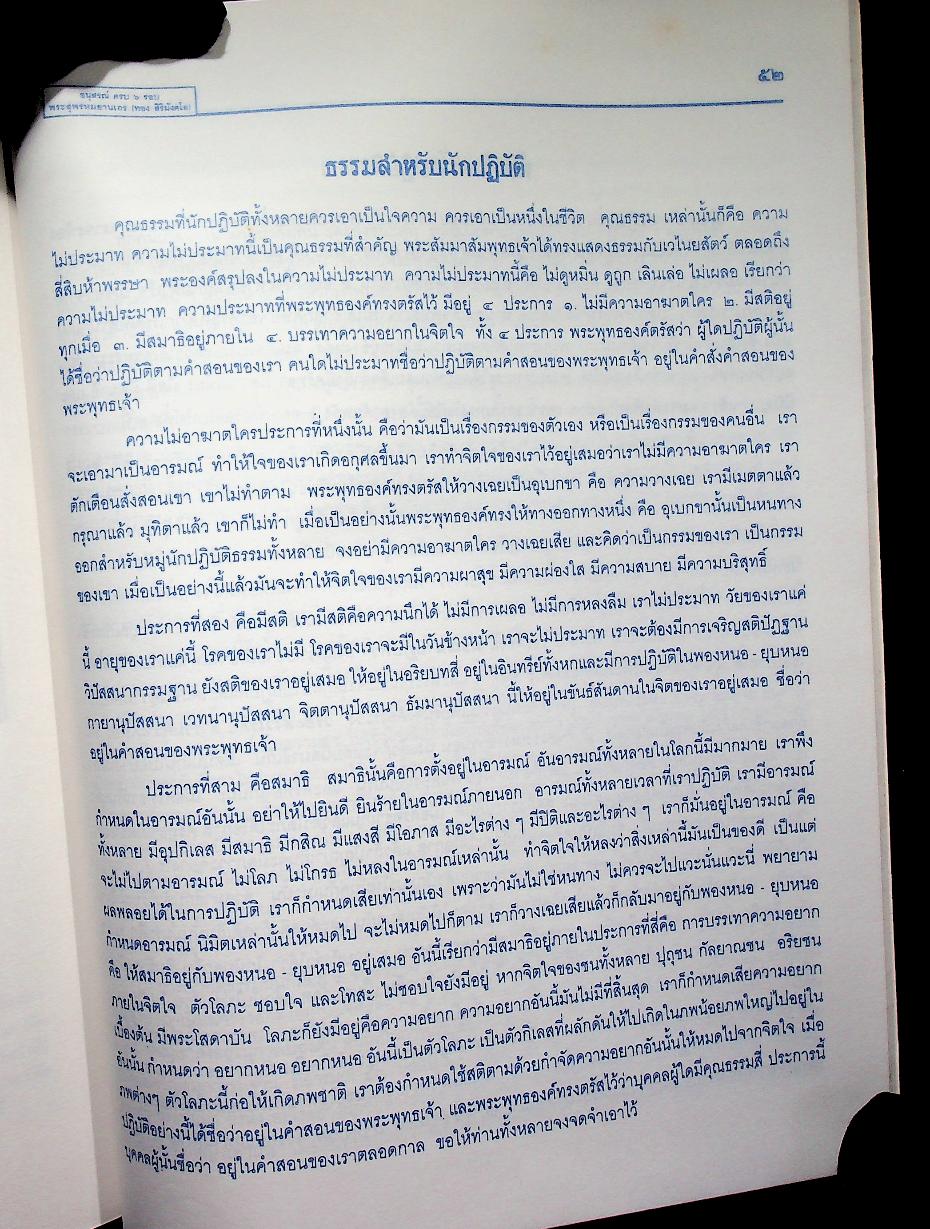 ๕๒
อนุสรณ์ ครบ ๖ รอบ
พระสุพรหมยานเถร (ทอง สิริมังคโล)
ธรรมสำหรับนักปฏิบัติ
คุณธรรมที่นักปฏิบัติทั้งหลายควรเอาเป็นใจความ ควรเอาเป็นหนึ่งในชีวิต คุณธรรม เหล่านั้นก็คือ ความ
ไม่ประมาท ความไม่ประมาทนี้เป็นคุณธรรมที่สำคัญ พระสัมมาสัมพุทธเจ้าได้ทรงแสดงธรรมกับเวไนยสัตว์ ตลอดถึง
สี่สิบห้าพรรษา พระองค์สรุปลงในความไม่ประมาท ความไม่ประมาทนี้คือ ไม่ดูหมิ่น ดูถูก เลินเล่อ ไม่เผลอ เรียกว่า
ความไม่ประมาท ความประมาทที่พระพุทธองค์ทรงตรัสไว้ มีอยู่ ๔ ประการ ๑. ไม่มีความอาฆาตใคร ๒. มีสติอยู่
ทุกเมื่อ ๓. มีสมาธิอยู่ภายใน ๔. บรรเทาความอยากในจิตใจ ทั้ง ๔ ประการ พระพุทธองค์ตรัสว่า ผู้ใดปฏิบัติผู้นั้น
ได้ชื่อว่าปฏิบัติตามคำสอนของเรา คนใดไม่ประมาทชื่อว่าปฏิบัติตามคำสอนของพระพุทธเจ้า อยู่ในคำสั่งคำสอนของ
พระพุทธเจ้า
ความไม่อาฆาตใครประการที่หนึ่งนั้น คือว่ามันเป็นเรื่องกรรมของตัวเอง หรือเป็นเรื่องกรรมของคนอื่น เรา
จะเอามาเป็นอารมณ์ ทำให้ใจของเราเกิดอกุศลขึ้นมา เราทำจิตใจของเราไว้อยู่เสมอว่าเราไม่มีความอาฆาตใคร เรา
ตักเตือนสั่งสอนเขา เขาไม่ทำตาม พระพุทธองค์ทรงตรัสให้วางเฉยเป็นอุเบกขา คือ ความวางเฉย เรามีเมตตาแล้ว
กรุณาแล้ว มุทิตาแล้ว เขาก็ไม่ทำ เมื่อเป็นอย่างนั้นพระพุทธองค์ทรงให้ทางออกทางหนึ่ง คือ อุเบกขานั้นเป็นหนทาง
ออกสำหรับหมู่นักปฏิบัติธรรมทั้งหลาย จงอย่ามีความอาฆาตใคร วางเฉยเสีย และคิดว่าเป็นกรรมของเรา เป็นกรรม
ของเขา เมื่อเป็นอย่างนี้แล้วมันจะทำให้จิตใจของเรามีความผาสุข มีความผ่องใส มีความสบาย มีความบริสุทธิ์
ประการที่สอง คือมีสติ เรามีสติคือความนึกได้ ไม่มีการเผลอ ไม่มีการหลงลืม เราไม่ประมาท วัยของเราแค่
นี้ อายุของเราแค่นี้ โรคของเราไม่มี โรคของเราจะมีในวันข้างหน้า เราจะไม่ประมาท เราจะต้องมีการเจริญสติปัฏฐาน
วิปัสสนากรรมฐาน ยังสติของเราอยู่เสมอ ให้อยู่ในอริยบทสี่ อยู่ในอินทรีย์ทั้งหกและมีการปฏิบัติในพองหนอ - ยุบหนอ
กายานุปัสสนา เวทนานุปัสสนา จิตตานุปัสสนา ธัมมานุปัสสนา นี้ให้อยู่ในขันธ์สันดานในจิตของเราอยู่เสมอ ชื่อว่า
อยู่ในคำสอนของพระพุทธเจ้า
ประการที่สาม คือสมาธิ สมาธินั้นคือการตั้งอยู่ในอารมณ์ อันอารมณ์ทั้งหลายในโลกนี้มีมากมาย เราพึง
กำหนดในอารมณ์อันนั้น อย่าให้ไปยินดี ยินร้ายในอารมณ์ภายนอก อารมณ์ทั้งหลายเวลาที่เราปฏิบัติ เรามีอารมณ์
ทั้งหลาย มีอุปกิเลส มีสมาธิ มีกสิณ มีแสงสี มีโอภาส มีอะไรต่าง ๆ มีปิติและอะไรต่าง ๆ เราก็มั่นอยู่ในอารมณ์ คือ
จะไม่ไปตามอารมณ์ ไม่โลภ ไม่โกรธ ไม่หลงในอารมณ์เหล่านั้น ทำจิตใจให้หลงว่าสิ่งเหล่านี้มันเป็นของดี เป็นแต่
ผลพลอยได้ในการปฏิบัติ เราก็กำหนดเสียเท่านั้นเอง เพราะว่ามันไม่ใช่หนทาง ไม่ควรจะไปแวะนั่นแวะนี่ พยายาม
กำหนดอารมณ์ นิมิตเหล่านั้นให้หมดไป จะไม่หมดไปก็ตาม เราก็วางเฉยเสียแล้วก็กลับมาอยู่กับพองหนอ - ยุบหนอ
คือ ให้สมาธิอยู่กับพองหนอ - ยุบหนอ อยู่เสมอ อันนี้เรียกว่ามีสมาธิอยู่ภายในประการที่สี่คือ การบรรเทาความอยาก
ภายในจิตใจ ตัวโลภะ ชอบใจ และโทสะ ไม่ชอบใจยังมีอยู่ หากจิตใจของชนทั้งหลาย ปุถุชน กัลยาณชน อริยชน
เบื้องต้น มีพระโสดาบัน โลภะก็ยังมีอยู่คือความอยาก ความอยากอันนี้มันไม่มีที่สิ้นสุด เราก็กำหนดเสียความอยาก
อันนั้น กำหนดว่า อยากหนอ อยากหนอ อันนี้เป็นตัวโลภะ เป็นตัวกิเลสที่ผลักดันให้ไปเกิดในภพน้อยภพใหญ่ไปอยู่ใน
ภพต่างๆ ตัวโลภะนี้ก่อให้เกิดภพชาติ เราต้องกำหนดใช้สติตามด้วยกำจัดความอยากอันนั้นให้หมดไปจากจิตใจ เมื่อ
ปฏิบัติอย่างนี้ได้ชื่อว่าอยู่ในคำสอนของพระพุทธเจ้า และพระพุทธองค์ทรงตรัสไว้ว่าบุคคลผู้ใดมีคุณธรรมสี่ ประการนี้
บุคคลผู้นั้นชื่อว่า อยู่ในคำสอนของเราตลอดกาล ขอให้ท่านทั้งหลายจงจดจำเอาไว้